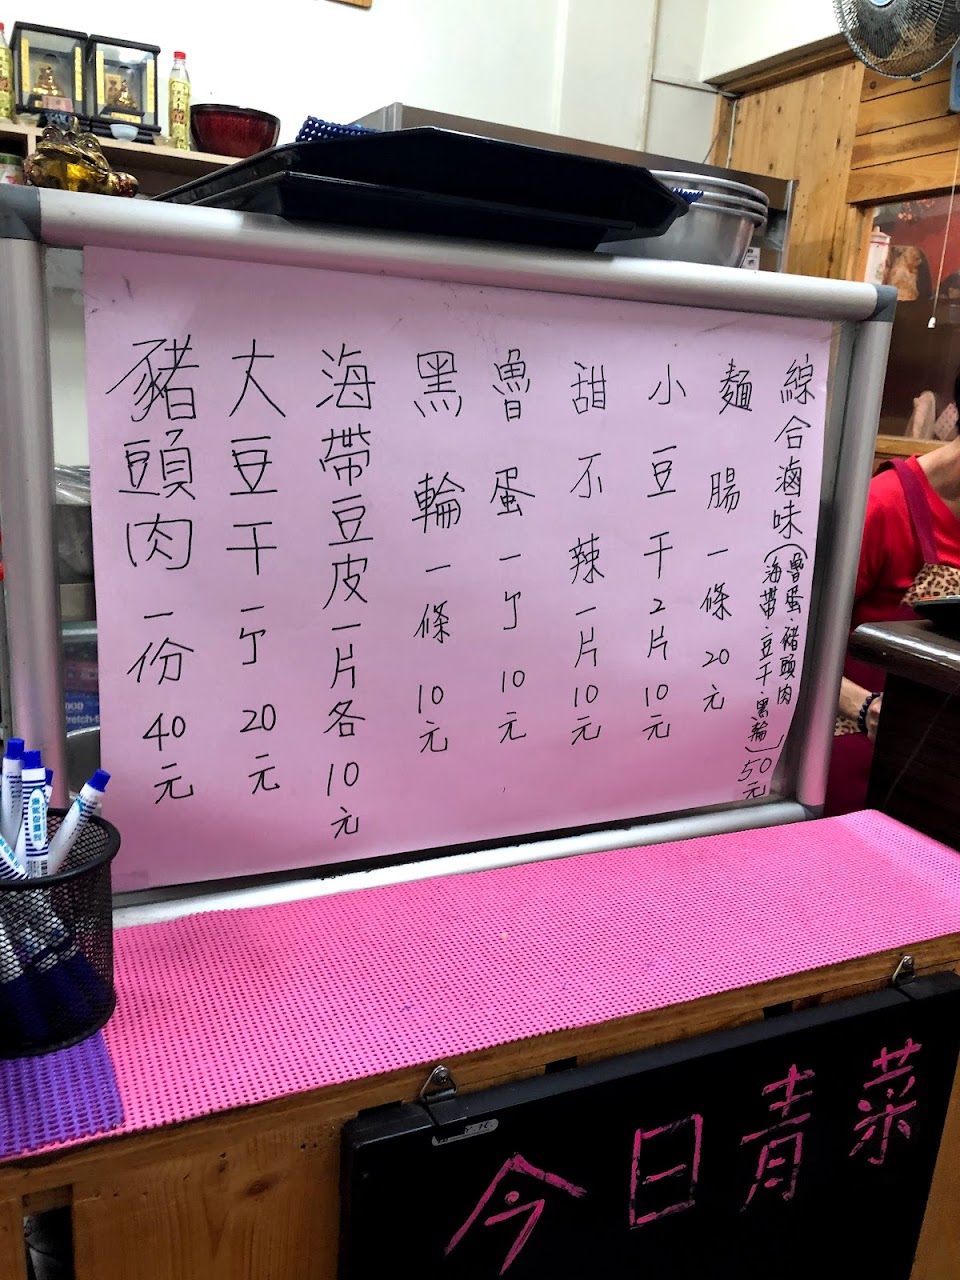 綜合滷味(魯蛋.豬頭肉
海帶.豆干.黑輪)50元
麵腸一條20元
小豆干2片10元
甜不辣一片10元
魯蛋一丁10元
黑輪一條10元
海帶豆皮一片各10元
大豆干一丁20元
豬頭肉一份40元
今日青菜